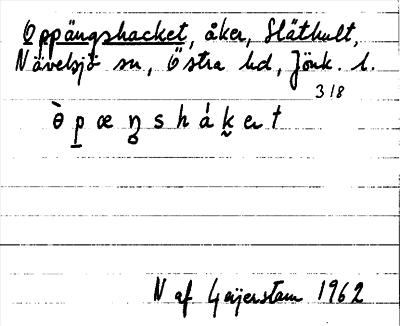 Oppängshacket, åker, Släthult,
Nävelsjö sn, Östra hd, Jönk. l.
3/8
N af Geijerstam 1962